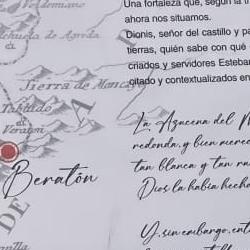 Valdemano
de Agreda
di
Sierra de Moncayo
Tablado
di
Veraton
Beratón
A
DE
Una fortaleza que, según la
ahora nos situamos.
Dionis, señor del castillo y pa
tierras, quién sabe con qué
criados y servidores Esteban
citado y contextualizados en
La Azucena del M
redonda, y bien merec
tan blanca y tan ru
Dios la había hecho
Y, sin embargo, ent